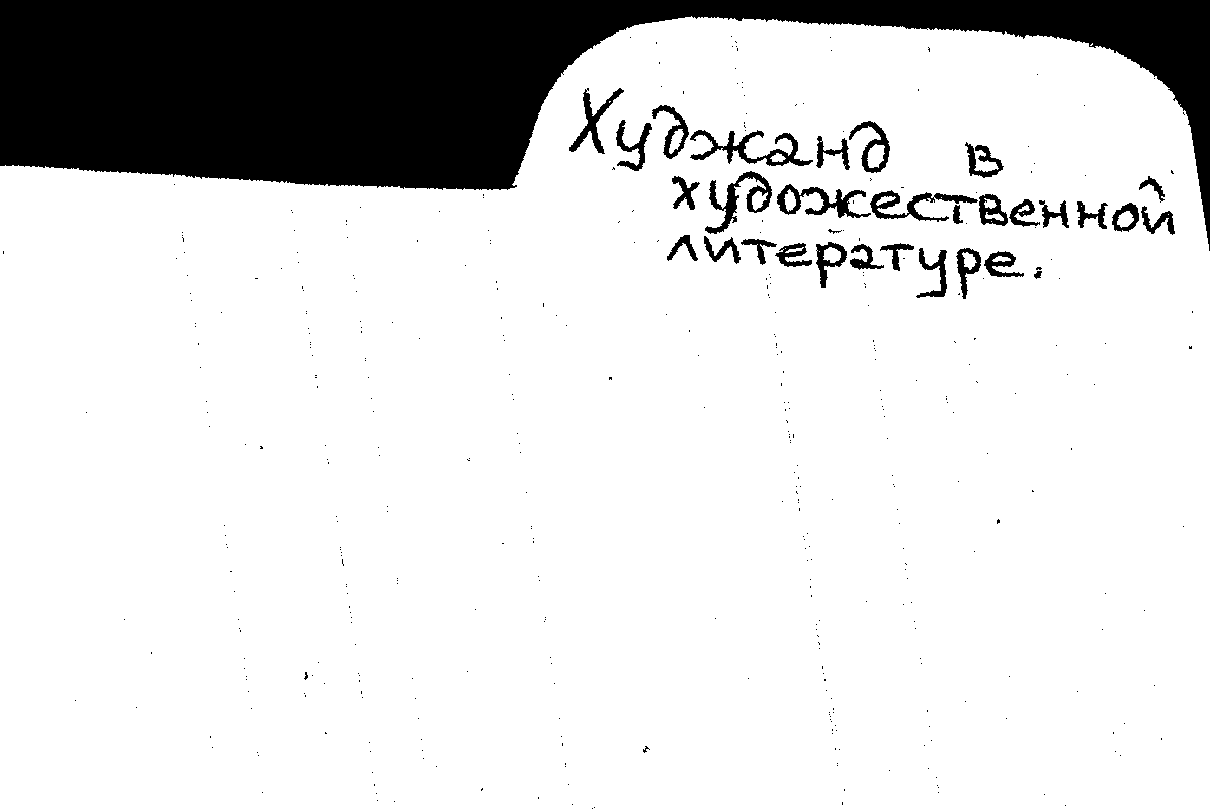 Худжанд в
художественной
литературе.